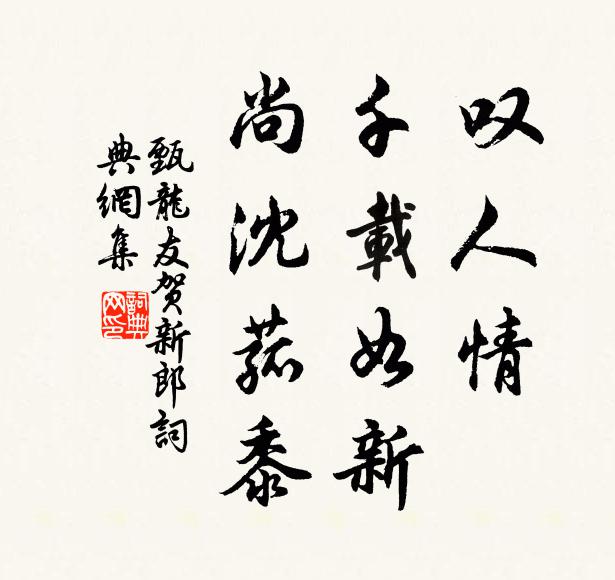 叹人情
千載如新
尚沈菰黍
甄龍友贺新郎詞
典網集
詞典网印